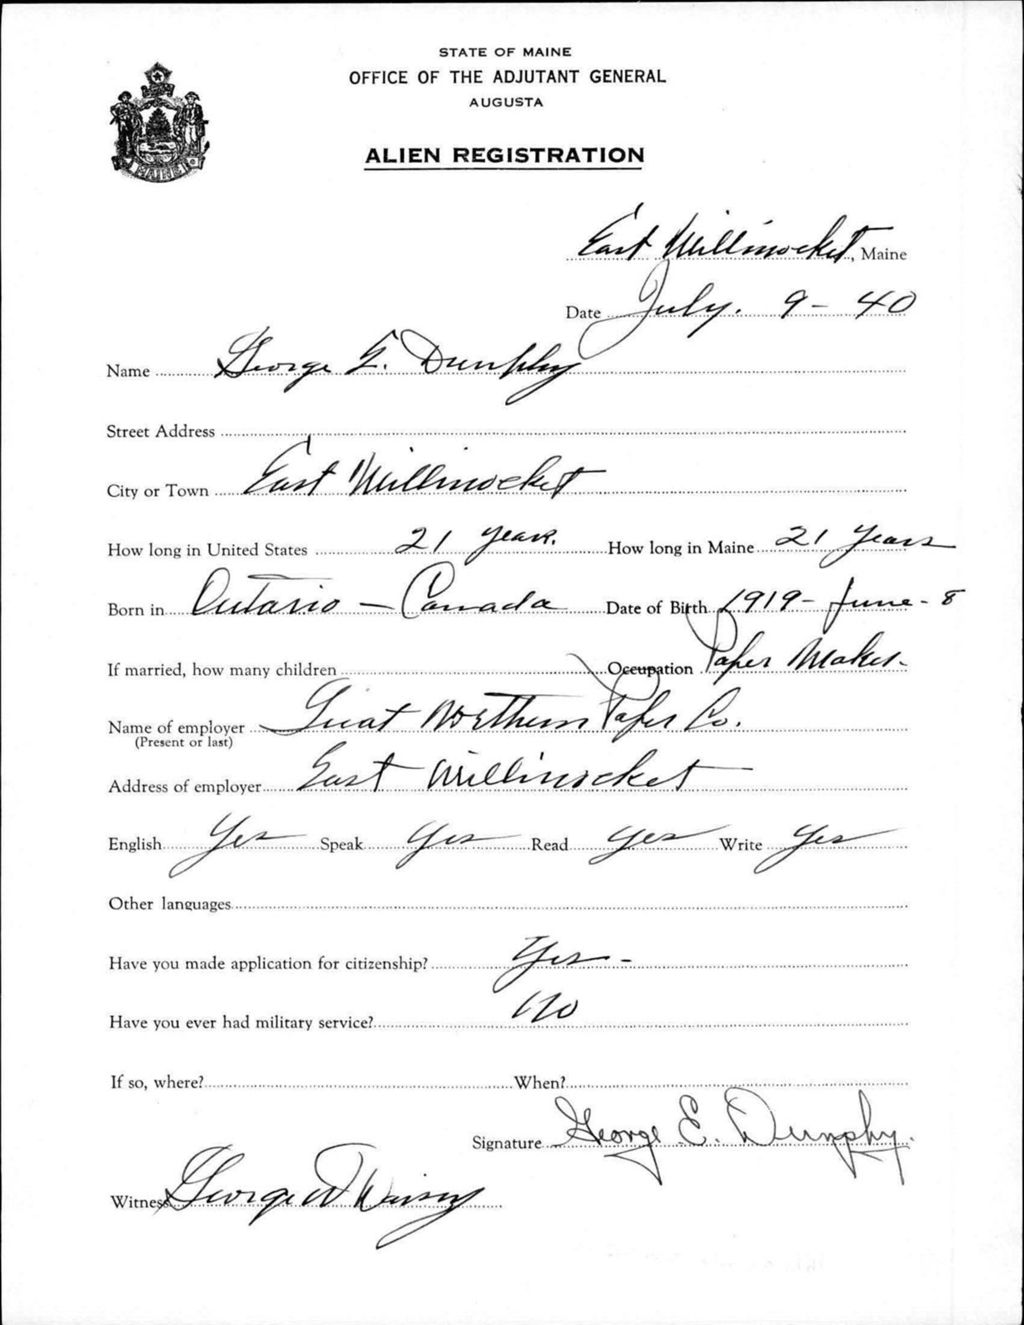 STATE OF MAINE
OFFICE OF THE ADJUTANT GENERAL
AUGUSTA
ALIEN REGISTRATION
MAINE
East Millinocket, Maine
Date July. 9 - 40
Name George E. Dunphy
Street Address
City or Town East Millinocket
How long in United States 21 years. How long in Maine 21 Years
Born in Ontario - Canada Date of Birth 1919 - June - 8
If married, how many children Occupation Paper Maker.
Name of employer Great Northern Paper Co.
(Present or last)
Address of employer East Millinocket
English Yes Speak Yes Read Yes Write Yes
Other languages
Have you made application for citizenship? Yes -
Have you ever had military service? No
If so, where? When?
Signature George E. Dunphy.
Witness George W